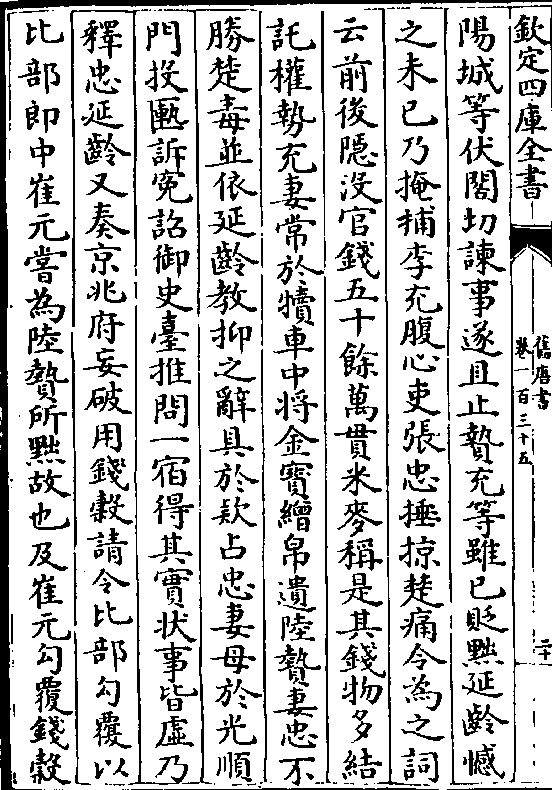 欽定四庫全書
舊唐書
卷一百三十五
二十
陽城等伏閤切諫事遂且止贄充等雖已貶黜延齡憾
之未已乃掩捕李充腹心吏張忠捶掠楚痛令為之詞
云前後隱没官錢五十餘萬貫米麥稱是其錢物多結
託權勢充妻常於犢車中將金寳繒帛遺陸贄妻忠不
勝楚毒並依延齡教抑之辭具於欵占忠妻母於光順
門投匭訴寃詔御史臺推問一宿得其實狀事皆虚乃
釋忠延齡又奏京兆府妄破用錢榖請令比部勾覆以
比部郎中崔元嘗為陸贄所黜故也及崔元勾覆錢榖